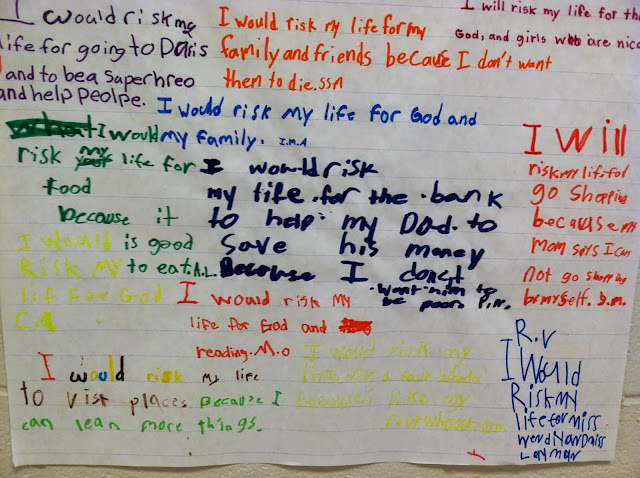 I would risk my
life for going to Paris
and to be a Superhreo
and help Peolpe.
I would risk my life for my
family and friends because I don't want
them to die. SSA
I will risk my life for the
God, and girls who are nice
I would risk my life for God and
my family. I.M.A
I would
risk my life for
food
because it
is good
to eat. A.L.
I would risk
my life for the bank
to help my Dad to
save his money
Because I don't
want him to
be poor. P.M.
I will
risk my life for
go Shopping
because my
mom says I can
not go shopping
by myself. B.M.
I would
Risk My
lif For God
C.A
I would risk My
life for God and
reading. M.O
I would risk my life
to visit places Because I
can lean more things.
I woud risk my
life for a four wheeler
because i like my
fourwheeler.
R.V
I Would
Risk My
life for Miss
Wendy and miss
Layman